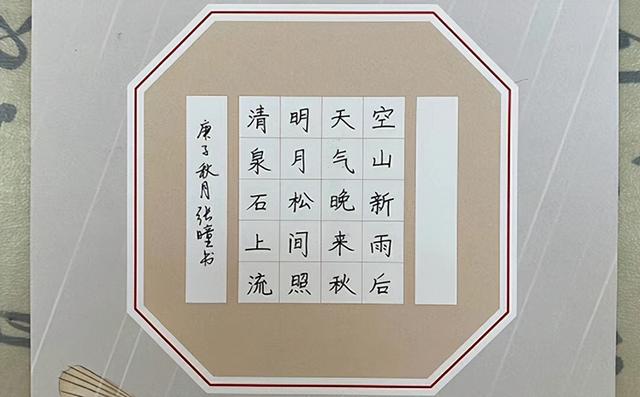 空山新雨后
天气晚来秋
明月松间照
清泉石上流
庚子秋月张瞳书